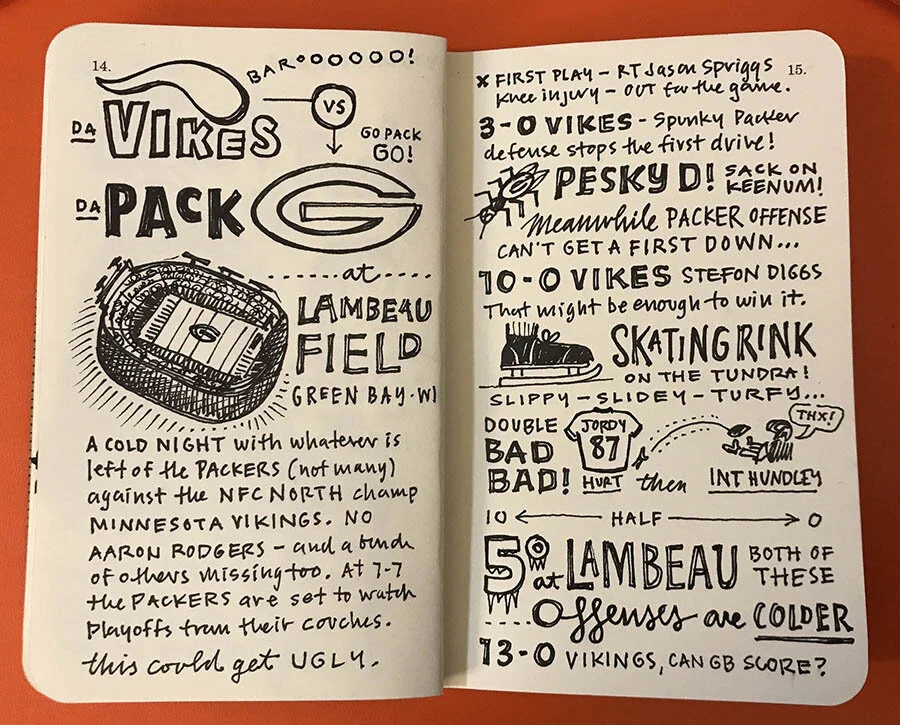 14.
BAROOOOOO!
DA VIKES
VS
GO PACK
GO!
DA PACK
G
at
LAMBEAU
FIELD
GREEN BAY · WI
A COLD NIGHT with whatever is
left of the PACKERS (not many)
against the NFC NORTH champ
MINNESOTA VIKINGS. NO
AARON RODGERS – and a bunch
of others missing too. At 7-7
the PACKERS are set to watch
Playoffs from their couches.
this could get UGLY.
15.
x FIRST PLAY – RT Jason Spriggs
Knee injury – OUT for the game.
3-0 VIKES - Spunky Packer
defense stops the first drive!
PESKY D! SACK ON
KEENUM!
Meanwhile PACKER OFFENSE
CAN'T GET A FIRST DOWN...
10-0 VIKES STEFON DIGGS
That might be enough to win it.
SKATING RINK
ON THE TUNDRA!
SLIPPY – SLIDEY – TURFY...
DOUBLE
BAD
BAD!
JORDY
87
HURT then
THX!
INT HUNDLEY
10 HALF 0
5° at LAMBEAU BOTH OF
THESE
....Offenses are COLDER
13-0 VIKINGS, CAN GB SCORE?